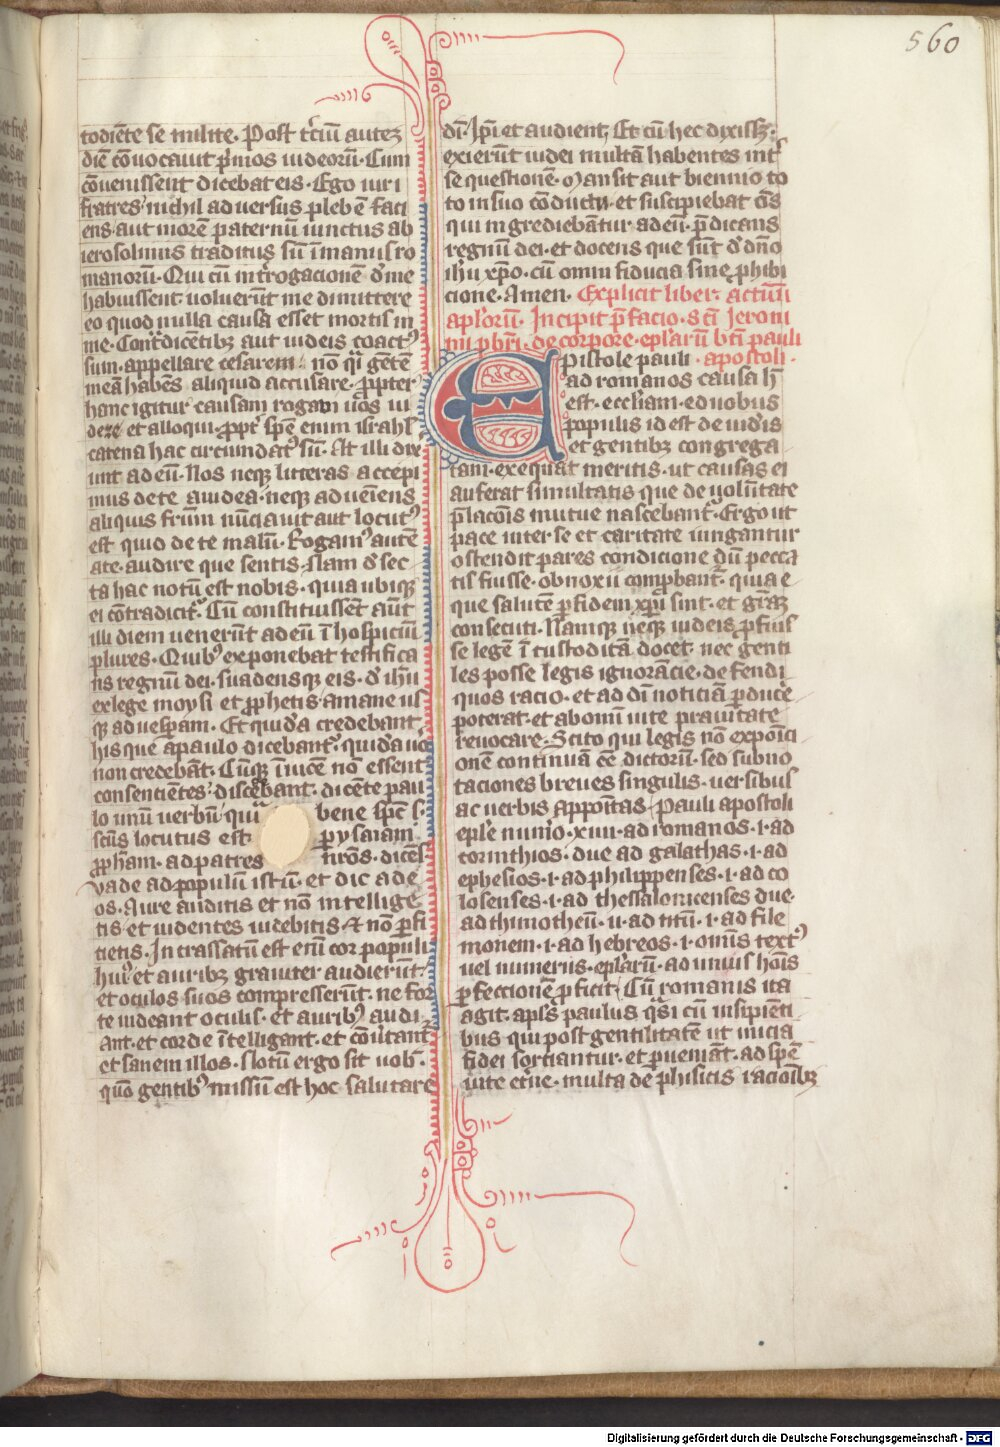 560
todiēte se milite. Post t̄ciū autez
diē cōuocauit p̄mos iudeorū. Cum
cōuenissent dicebat eis. Ego uiri
fratres nichil aduersus plebē faci
ens aut morē paternū uinctus ab
ierosolimis traditus sū ī manus ro
manorū. Qui cū introgacionē d' me
habuissent uoluerūt me dimittere
eo quod nulla causa esset mortis in
me. Contdicētibꝫ aut iudeis coactꝰ
sum appellare cesarem nō q̄i gētē
meā habēs aliquid accusare. ꝓpter
hanc igitur causam rogaui uos ui
deze et alloqui. ꝓpt' spē enim israhl'
catena hac circumdatꝰ sū. At illi dix
iūt ad eū. Nos neqꝫ litteras accepi
mus de te a iudea neqꝫ adueiēns
aliquis frūm nūciauit aut locutꝰ
est quid de te malū. Rogamꝰ autē
a te audire que sentis. Nam d' sec
ta hac notū est nobis quia ubiqꝫ
ei cōtradicit̄. Cū constituissēt aūt
illi diem uenerūt ad eū ī hospiciū
plures. Quibꝰ exponebat testifica
ns regnū dei. suadensqꝫ eis d' ihū
ex lege moysi et ꝓphetis a mane us
qꝫ ad uesꝑam. Et quidā credebant
his que a paulo dicebant̄. quidā uō
non credebāt. Cūqꝫ īuicē nō essent
consencientes discedebant. dicēte pau
lo unū uerbū quia bene spc̄ s
scūs locutus est ꝑ ysaiam
ꝓphām. ad patres nrōs. dicēs
Vade ad populū istū. et dic ad e
os. Aure auditis et nō intellige
tis et uidentes uidebitis ⁊ nō ꝑspi
tietis. Incrassatū est enī cor populi
huiꝰ et auribꝫ grauiter audierūt.
et oculos suos compresserūt. ne for
te uideant oculis et auribꝰ audi
ant. et corde ītelligant et cōūtant
et sanem illos. Notū ergo sit uob'
quō gentibꝰ missū est hoc salutare
di. Ip̄i et audient. Et cū hec dixissꝫ.
exierūt iudei multā habentes int'
se questionē. Mansit aut biennio to
to in suo cōducto. et suscipiebat oēs
qui ingrediebātur ad eū. p̄dicans
regnū dei. et docens que sūt d' dn̄o
ihū xp̄o. cū omni fiducia sine ꝓhibi
cione. Amen. Explicit liber. actuū
apl'orū. Incipit p̄facio. scī Jeroni
mi pbr̄i. de corpore. epl'arū bt̄i pauli
Epistole pauli . apostoli .
ad romanos causa h̄
est. eccl'iam. e duobus
populis id est de iud'is
et gentibꝫ congrega
tam. exequat meritis. ut causas ei
auferat simultatis que de uolūtate
p̄lacōis mutue nascebant̄. Ergo ut
pace inter se et caritate iungantur
ostendit pares condicione dū pecca
tis fuisse obnoxii comꝓbant̄. quia e
que salutē ꝑ fidem xp̄i sint. et grām
consecuti. Namqꝫ neqꝫ iudeis ꝓfuis
se legē ī custoditā docet. nec genti
les posse legis ignorācie. defendi
quos racio. et ad dī noticiā ꝑduce
poterat. et ab omni uite prauitate
reuocare. Scito qui legis nō expoīci
onē continuā eē dictorū. sed subno
taciones breues singulis. uersibus
ac uerbis appoītas. Pauli apostoli
epl'e nūio. xiiii. ad romanos. i. ad
corinthios. due ad galathas. i. ad
ephesios. i. ad philippenses. i. ad co
losenses. i. ad thessalonicenses due.
ad thimotheū. ii. ad titū. i. ad file
monem. i. ad hebreos. i. omīs textꝰ
uel numerus. epl'arū. ad unius hoīs
ꝑfeccionē ꝓficit. Cū romanis ita
agit. apl's paulus q̄si cū insipienti
bus qui post gentilitatē ut inicia
fidei sortiantur. et ꝑueniāt. ad spē
uite et'ne. multa de phisicis racioībꝫ
Digitalisierung gefördert durch die Deutsche Forschungsgemeinschaft - DFG